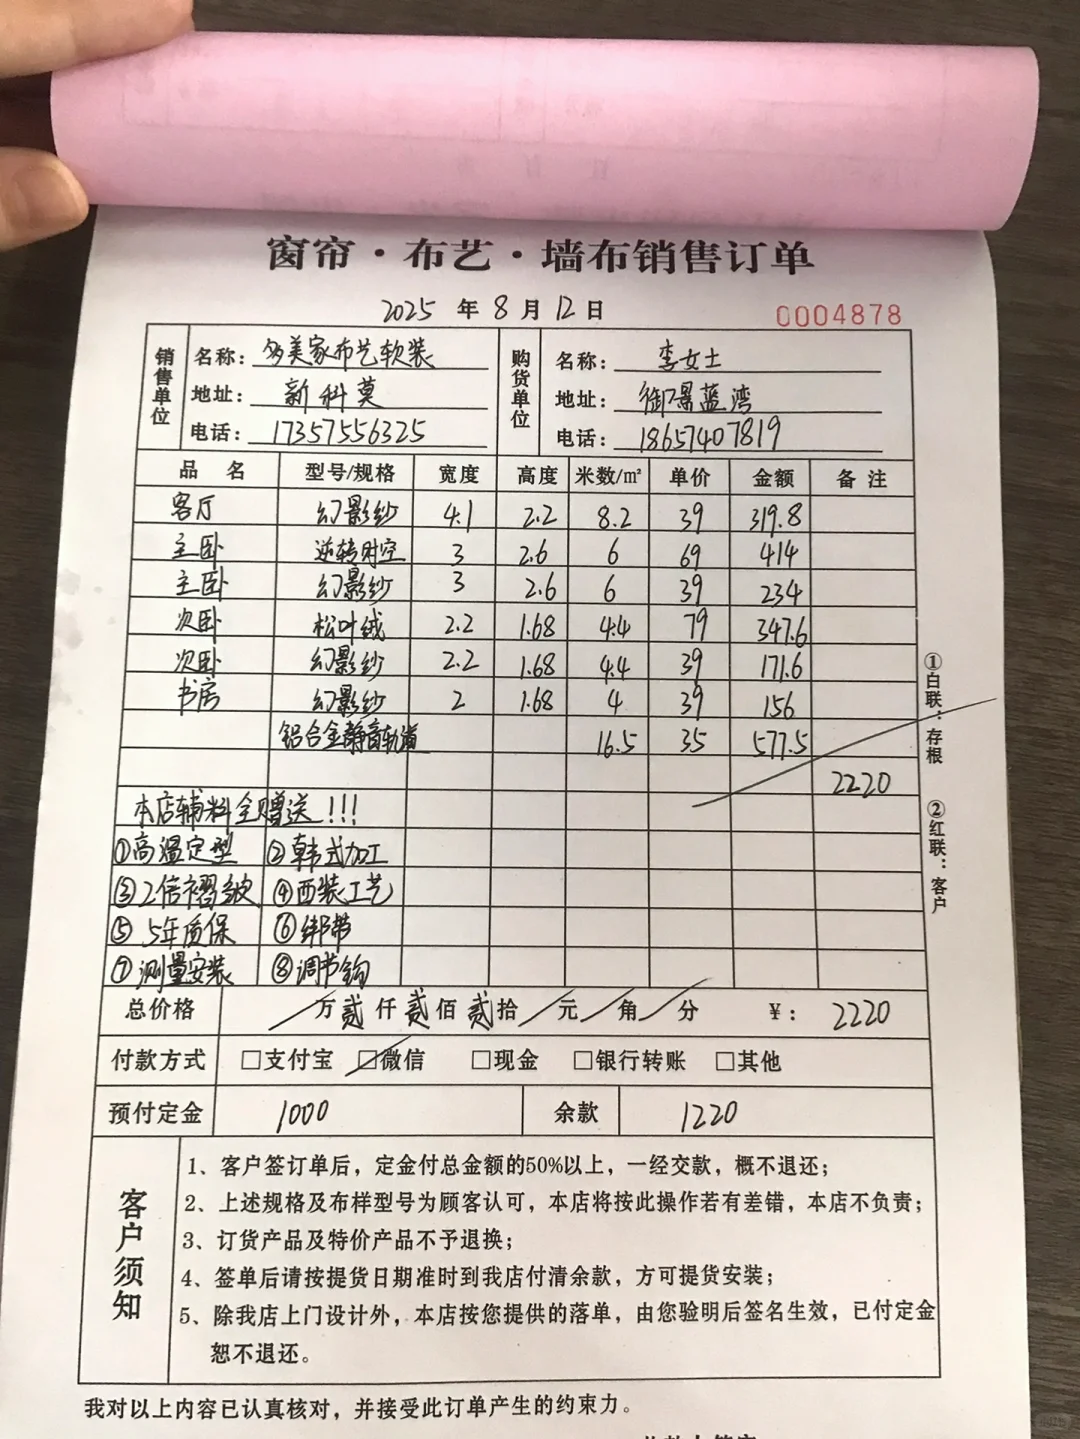 窗帘·布艺·墙布销售订单
2025 年 8 月 12 日 0004878
销售单位 名称: 多美家布艺软装 购货单位 名称: 李女士
地址: 新科莫 地址: 御璟蓝湾
电话: 17357556325 电话: 18657407819
品 名 型号/规格 宽度 高度 米数/㎡ 单价 金额 备 注
客厅 幻影纱 4.1 2.2 8.2 39 319.8
主卧 逆转时空 3 2.6 6 69 414
主卧 幻影纱 3 2.6 6 39 234
次卧 松叶绒 2.2 1.68 4.4 79 347.6
次卧 幻影纱 2.2 1.68 4.4 39 171.6
书房 幻影纱 2 1.68 4 39 156
铝合金静音轨道 16.5 35 577.5
2220
本店辅料全赠送!!!
①高温定型 ②韩式加工
③2倍褶皱 ④西装工艺
⑤5年质保 ⑥绑带
⑦测量安装 ⑧调节钩
①白联:存根 ②红联:客户
总价格 万贰仟贰佰贰拾 元 角 分 ¥: 2220
付款方式 □支付宝 ☑微信 □现金 □银行转账 □其他
预付定金 1000 余款 1220
客户须知
1、客户签订单后,定金付总金额的50%以上,一经交款,概不退还;
2、上述规格及布样型号为顾客认可,本店将按此操作若有差错,本店不负责;
3、订货产品及特价产品不予退换;
4、签单后请按提货日期准时到我店付清余款,方可提货安装;
5、除我店上门设计外,本店按您提供的落单,由您验明后签名生效,已付定金
恕不退还。
我对以上内容已认真核对,并接受此订单产生的约束力。